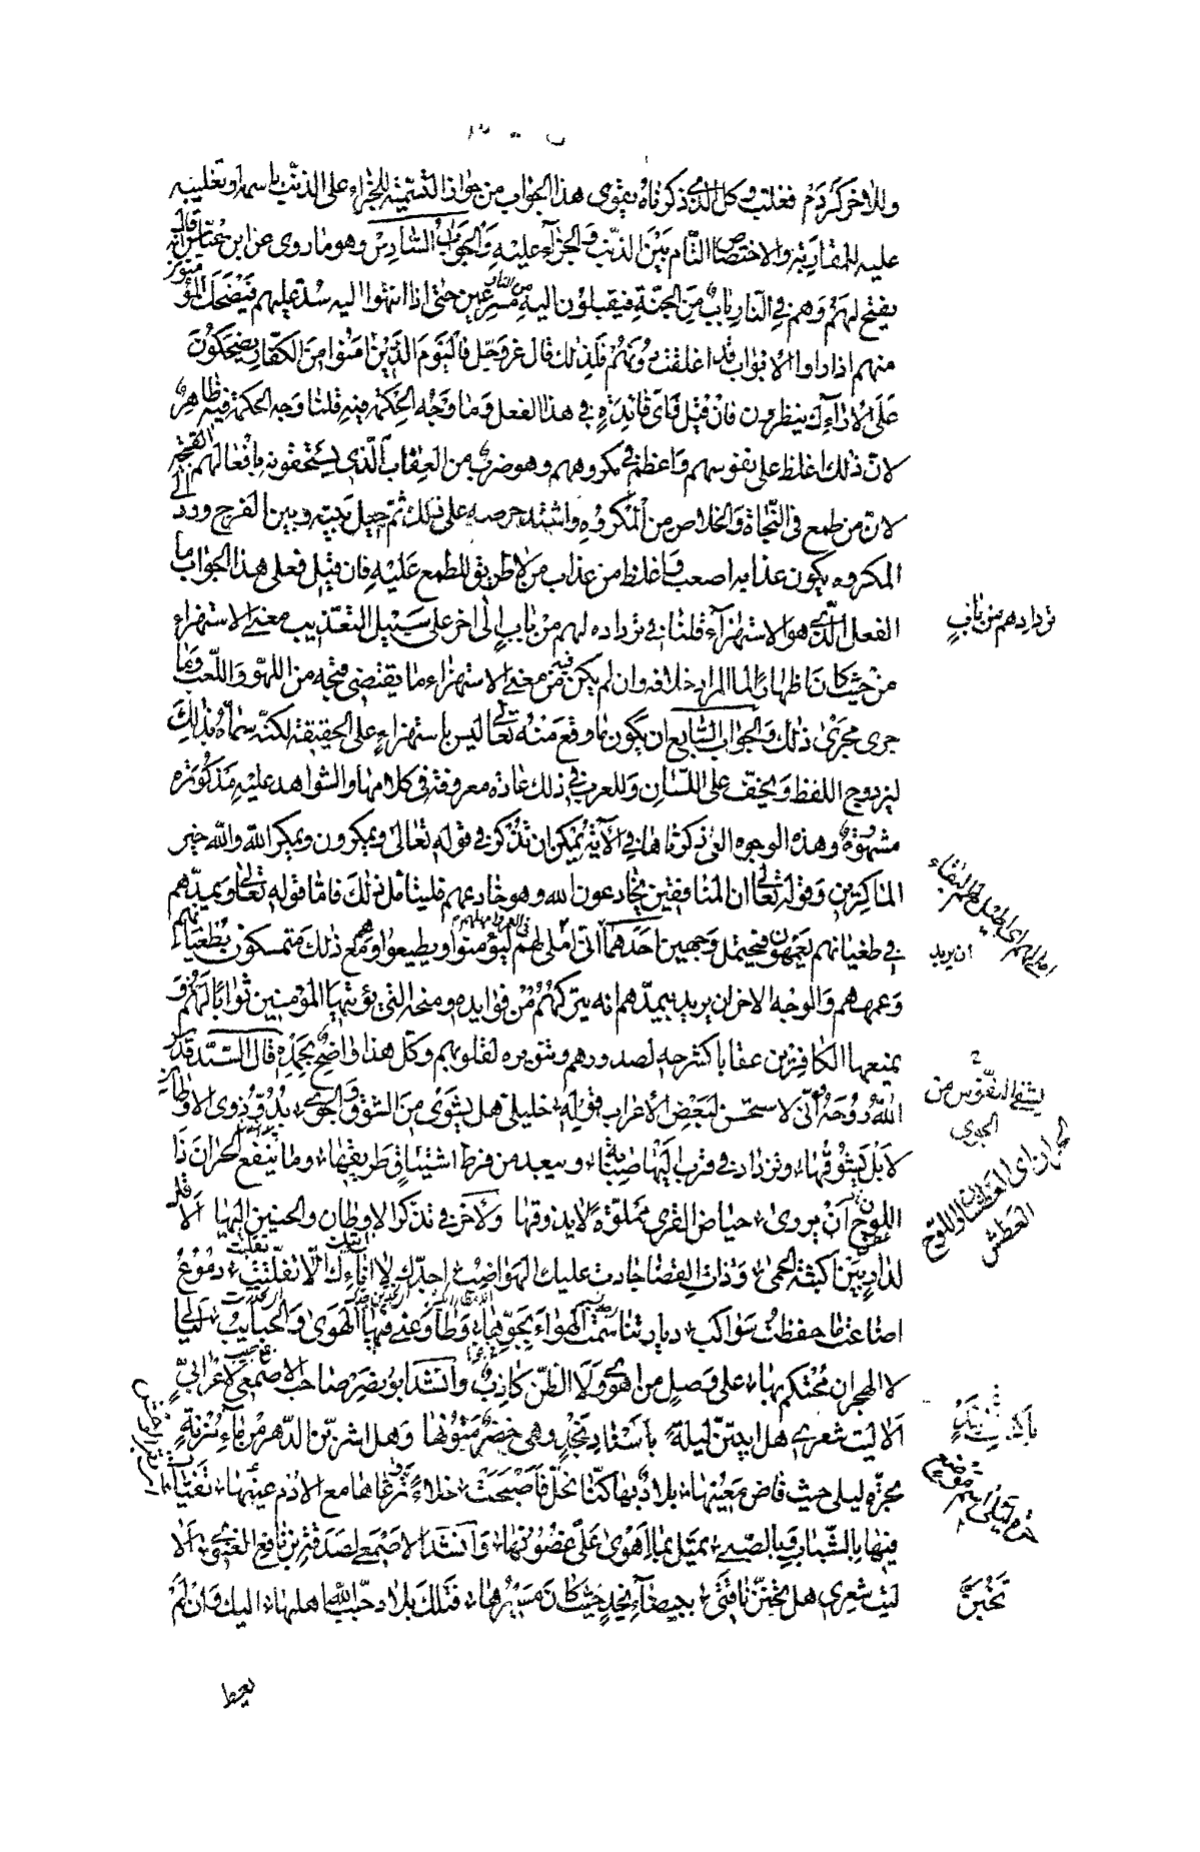 وللاخر كردم فغلب وكل الذي ذكرناه يقوى هذا الجواب من جواز التسمية للجزاء على الذنب باسمه او تغليبه
عليه للمقاربة والاختصاص التام بين الذنب والجزاء عليه والجواب السادس وهو ما روى عن ابن عباس قال انه
يفتح لهم وهم في النار باب من الجنة فيقبلون اليه من النار مسرعين حتى اذا انتهوا اليه سد عليهم فيضحك المؤمنون
منهم اذا راوا الابواب قد اغلقت دونهم فلذلك قال عز وجل فاليوم الذين امنوا من الكفار يضحكون
على الارائك ينظرون فان قيل فاى فائدة في هذا الفعل وما وجه الحكمة فيه قلنا وجه الحكمة فيه ظاهر
لان ذلك اغلظ على نفوسهم واعظم في مكروههم وهو ضرب من العقاب الذي يستحقونه بافعالهم القبيحة
لان من طمع فى النجاة والخلاص من المكروه واشتد حرصه على ذلك ثم حيل بينه وبين الفرج ورد الى
المكروه يكون عذابه اصعب واغلظ من عذاب من لا طريق للطمع عليه فان قيل فعلى هذا الجواب ما
الفعل الذي هو الاستهزاء قلنا في ترداده لهم من باب الى اخر على سبيل التعذيب معنى الاستهزاء
تردادهم من باب
من حيث كان اظهارا لما المراد خلافه وان لم يكن فيه من معنى الاستهزاء ما يقتضى قبحه من اللهو واللعب وما
جرى مجرى ذلك والجواب السابع ان يكون ما وقع منه تعالى ليس باستهزاء على الحقيقة لكنه سماه بذلك
ليزدوج اللفظ ويخف على اللسان وللعرب في ذلك عادة معروفة في كلامها والشواهد عليه مذكورة
مشهورة وهذه الوجوه التى ذكرناها في الآية يمكن ان تذكر في قوله تعالى ويمكرون ويمكر الله والله خير
الماكرين وفي قوله تعالى ان المنافقين يخادعون الله وهو خادعهم فليتأمل ذلك فاما قوله تعالى ويمدهم
في طغيانهم يعمهون فيحتمل وجهين احدهما اني املى لهم ليؤمنوا ويطيعوا وهم مع ذلك متمسكون بطغيانهم
ان يريد
وعمههم والوجه الاخر ان يريد بيمدهم انه يتركهم من فوايده ومنحه التي يؤتيها المؤمنين ثوابا لهم و
يمنعها الكافرين عقابا كشرحه لصدورهم وتنويره لقلوبهم وكل هذا واضح بحمده قال السيد قدس
الله روحه اني لاستحسن لبعض الاعراب قوله خليلى هل يشفى من الشوق والجوى بدو ذوى الاوطان
يشفى النفوس من
الجوى
لا بل يشوقها وتزداد في قرب اليها صبابة ويبعد من فرط اشتياق طريقها وما ينفع الحران ذا
اللوح ان يرى حياض القرى مملوءة لا يذوقها ولاخر في تذكر الاوطان والحنين اليها الا قل
لدار بين اكثبة الحمى وذات الغضا جادت عليك الهواضب اجدك لا اتيك الا تقلبت دموع
اضاعت ما حفظت سواكب ديار تناسمت الهواء بجوها وطاوعنى فيها الهوى والحبايب ليالى
لا الهجران محتكم بها على وصل من اهوى ولا الظن كاذب وانشد ابو نصر صاحب الاصمعي لاعرابى
الا ليت شعري هل ابيتن ليلة باسناد نجد وهى خضر متونها وهل اشربن الدهر من ماء مزنة
بحرة ليلى حيث فاض معينها بلاد بها كنا نحل فاصبحت خلاء ترعاها مع الادم عينها تفيأت
فيها بالشباب وبالصبى تميل بما اهوى على غضونها وانشد الاصمعى لصدقة بن نافع الغنوى الا
ليت شعري هل تحنن ناقتى ببيضاء نجد حيث كان مسيرها فتلك بلاد حبب الله اهلها اليك وان لم
تخبن
يعط